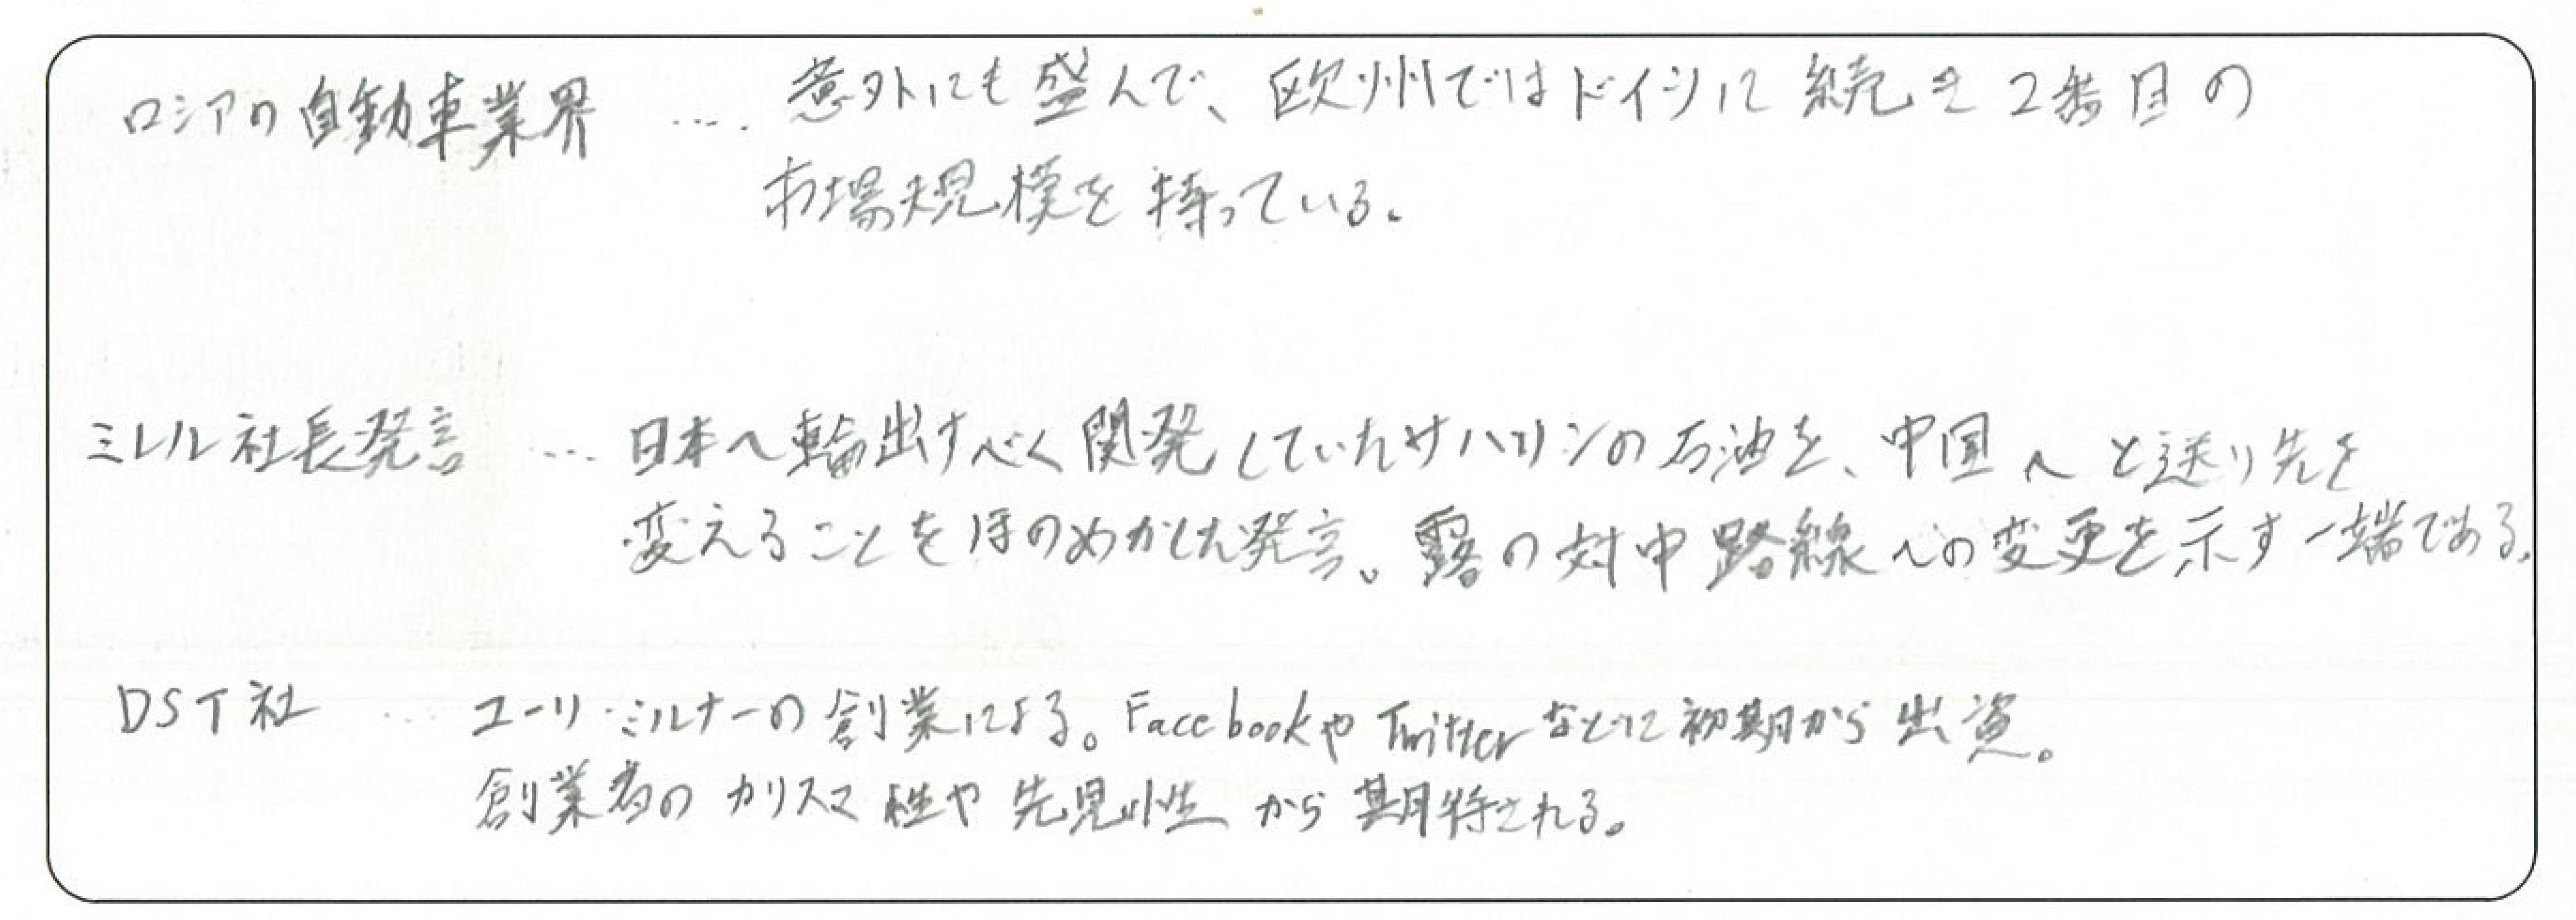 ロシアの自動車業界 .... 意外にも盛んで、欧州ではドイツに続き2番目の
市場規模を持っている。
ミレル社長発言 .... 日本へ輸出すべく開発していたサハリンの石油を、中国へと送り先を
変えることをほのめかした発言。露の対中路線への変更を示す一端である。
DST社 .... ユーリ・ミルナーの創業による。FacebookやTwitterなどに初期から出資。
創業者のカリスマ性や先見性から期待される。